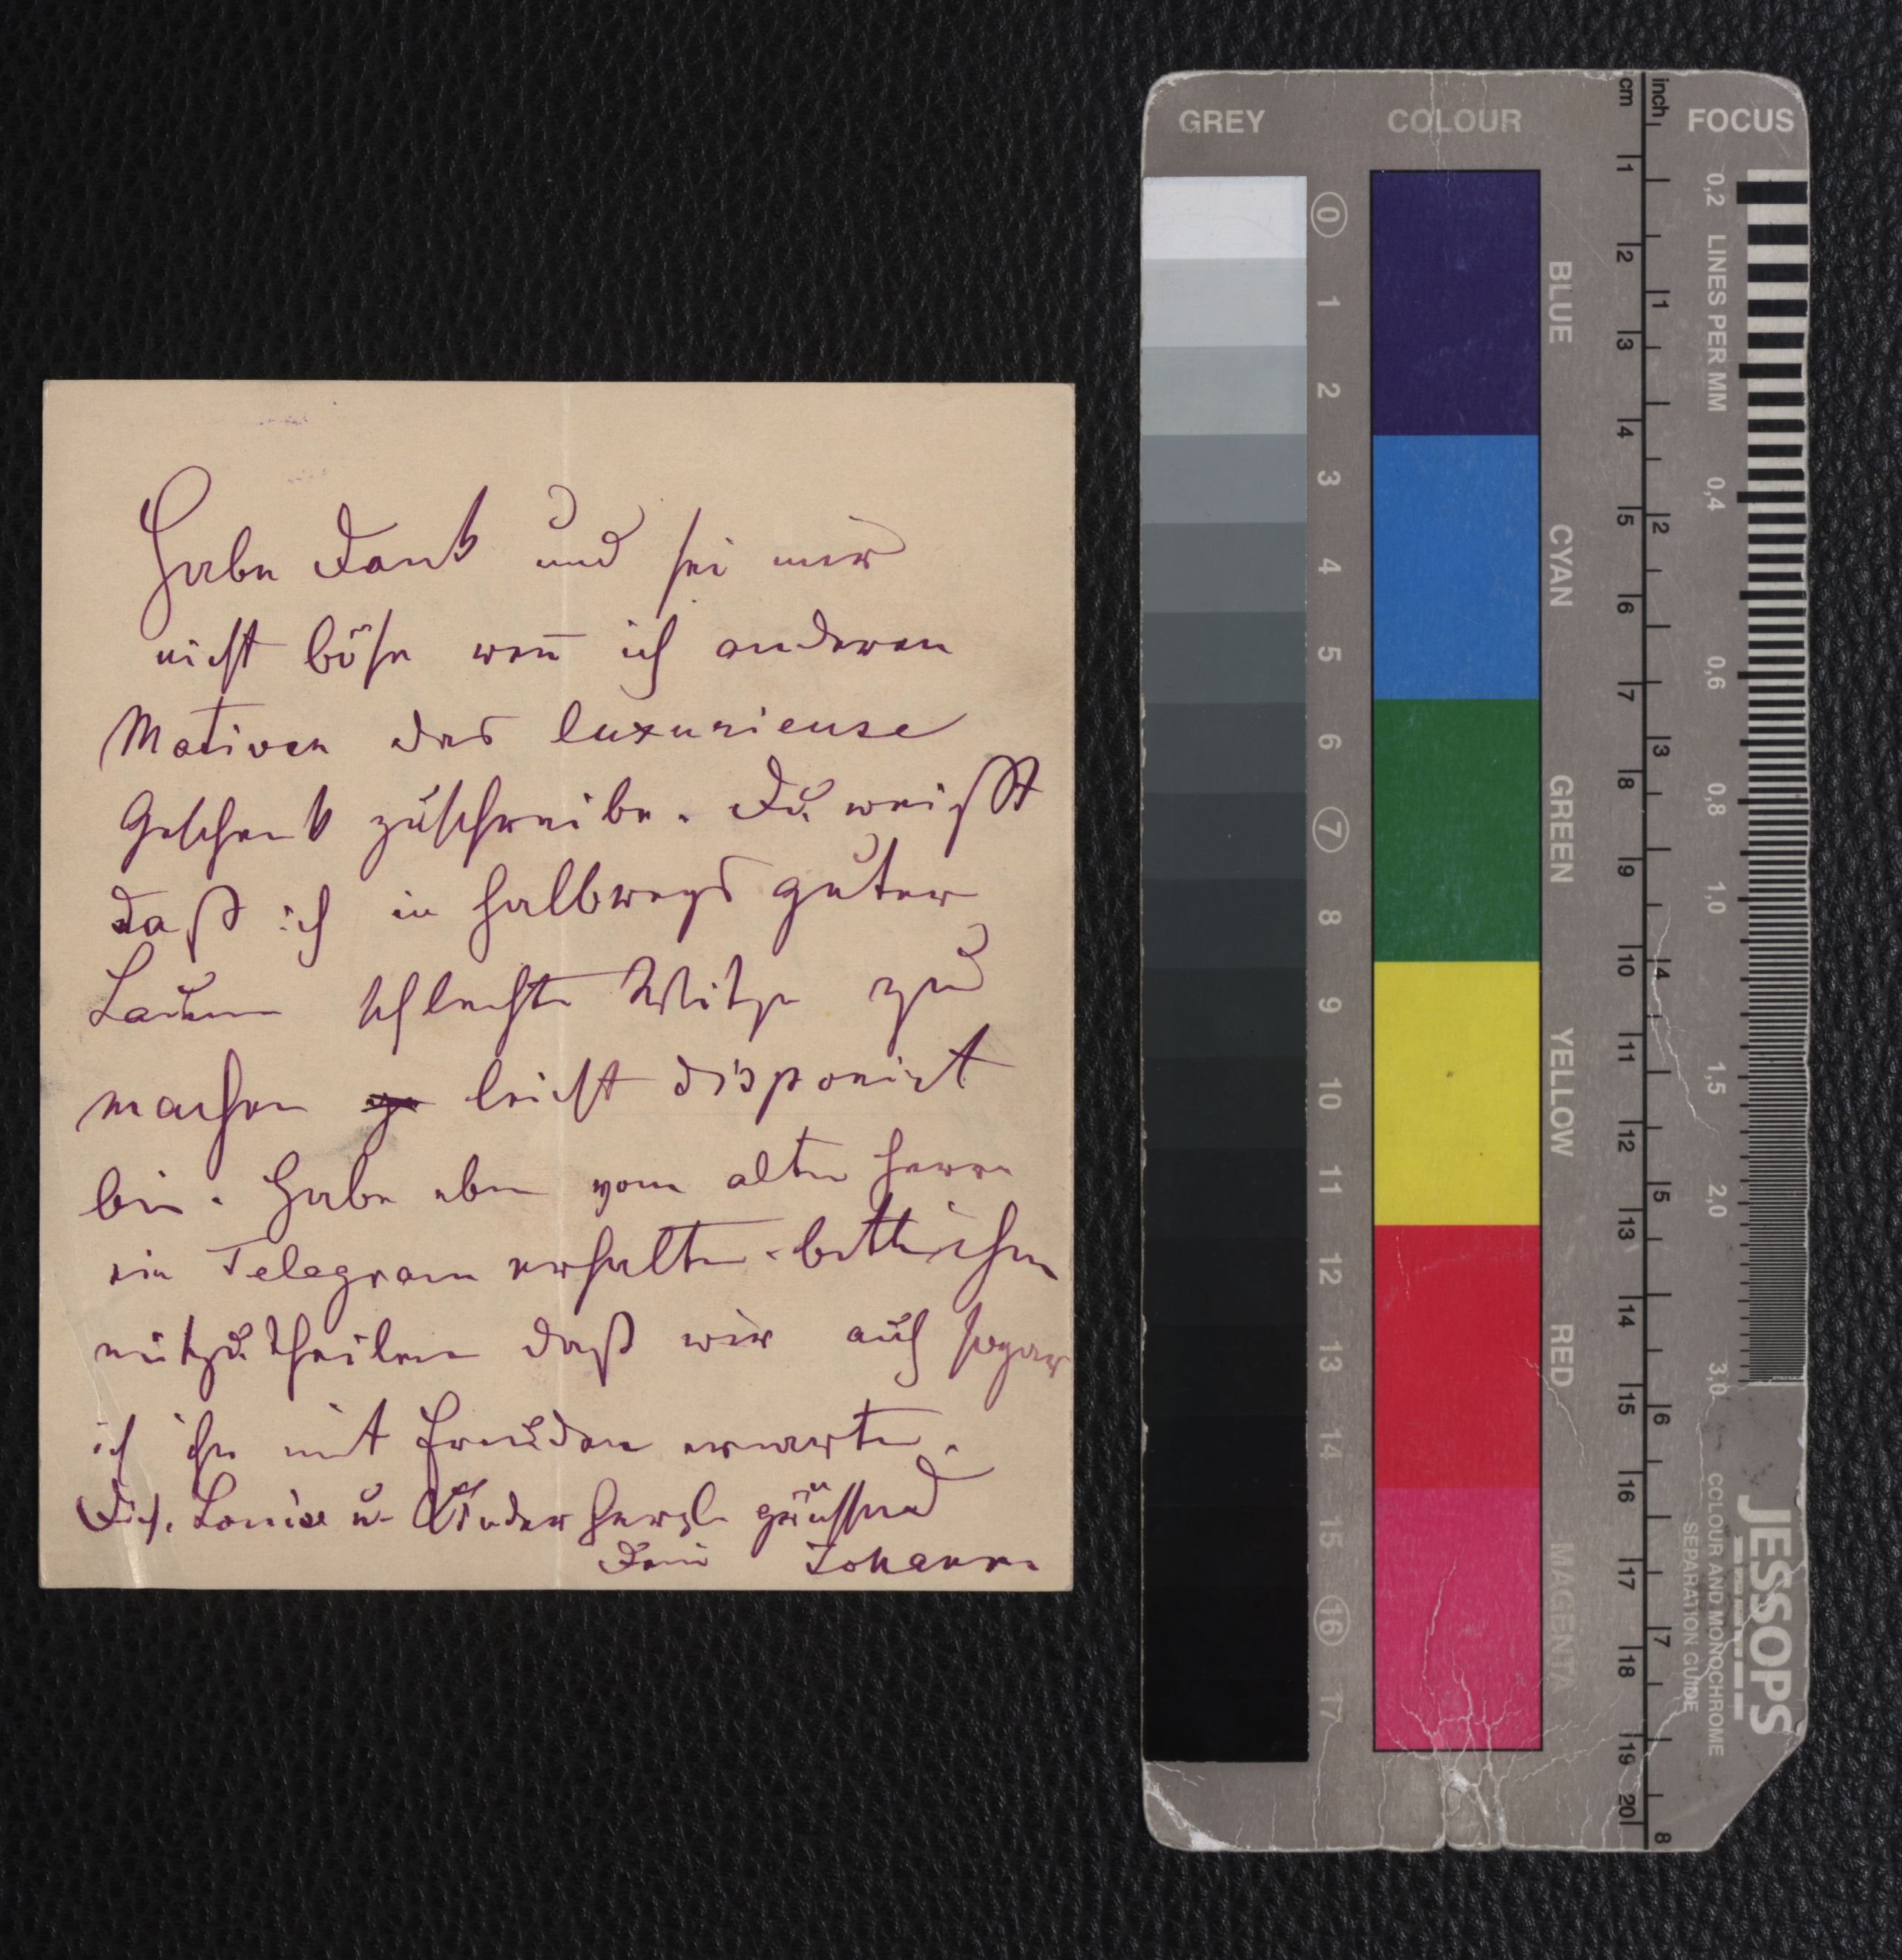 Habe Dank und sei mir
nicht böse weñ ich anderen
Motiven das luxurieuse
Geschenk zuschreibe. Du weißt
daß ich in halbwegs guter
Laune schlechte Witze zu
machen leicht disponirt
bin. Habe eben vom alten Herrn
ein Telegram erhalten. bitte ihm
mitzutheilen daß wir auch sogar
ich ihn mit Freuden erwarten.
Dich, Louise u. Kinder herzl. grüssend
Dein Johann
GREY
COLOUR
cm
inch
FOCUS
0 1 2 3 4 5 6 7 8 9 10 11 12 13 14 15 16 17
BLUE
CYAN
GREEN
YELLOW
RED
MAGENTA
1 2 3 4 5 6 7 8 9 10 11 12 13 14 15 16 17 18 19 20
1 2 3 4 5 6 7 8
0,2 LINES PER MM 0,4 0,6 0,8 1,0 1,5 2,0 3,0
JESSOPS
COLOUR AND MONOCHROME
SEPARATION GUIDE